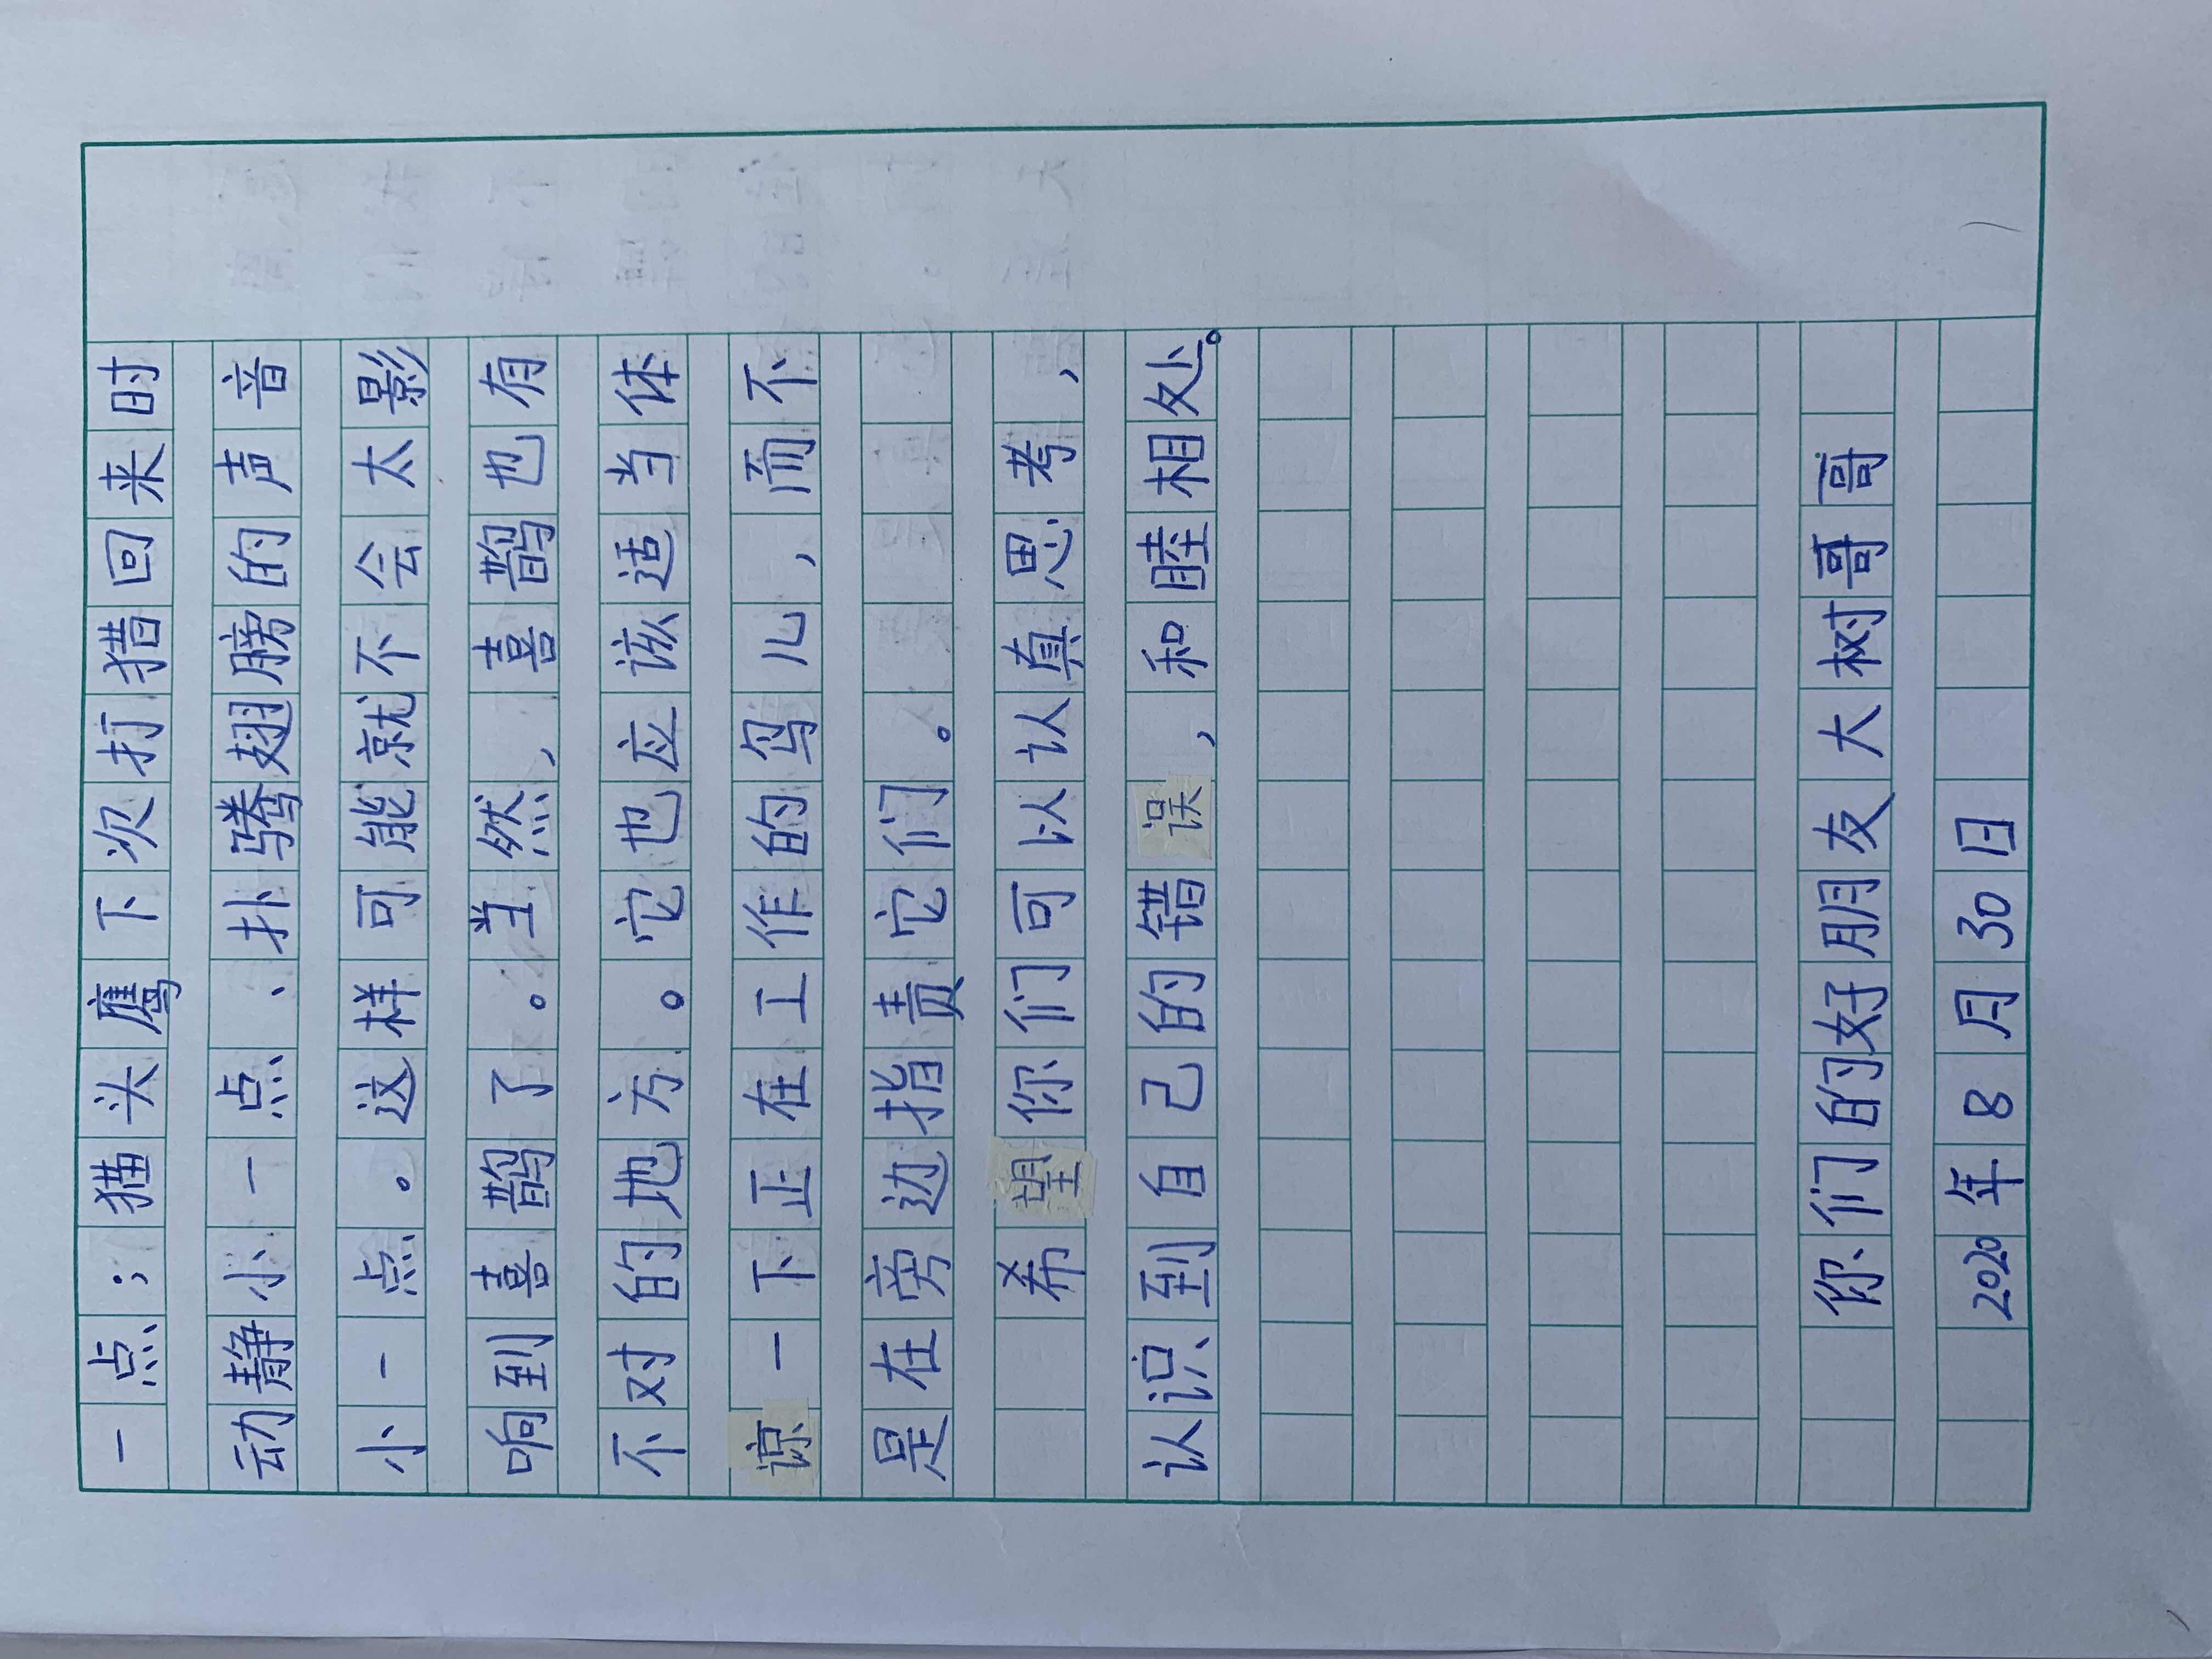 一点；猫头鹰下次打猎回来时
动静小一点、扑腾翅膀的声音
小一点。这样可能就不会太影
响到喜鹊了。当然，喜鹊也有
不对的地方。它也应该适当体
谅一下正在工作的鸟儿，而不
是在旁边指责它们。
希望你们可以认真思考，
认识到自己的错误，和睦相处。
你们的好朋友大树哥哥
2020年8月30日